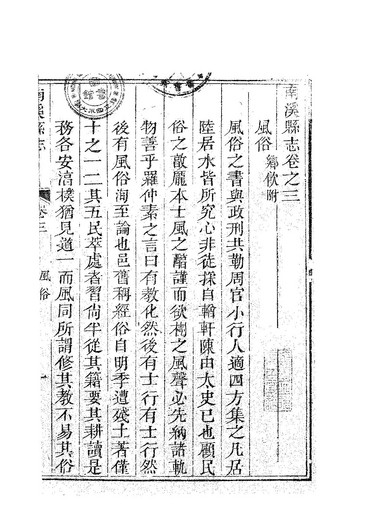 南溪縣志卷之三
風俗 鄉飲附
風俗之書與政刑共勒周官小行人適四方集之凡居
陸居水皆所究心非徒採自輶軒陳由太史已也顧民
俗之敵龎本士風之醕謹而欲樹之風聲必先納諸軌
物善乎羅仲素之言曰有教化然後有士行有士行然
後有風俗洵至論也邑舊稱經俗自明季遭殘土著僅
十之一二其五民萃處者習尚半從其籍要其耕讀是
務各安湻樸猶見道一而風同所謂修其教不易其俗
南溪縣志
卷三
風俗